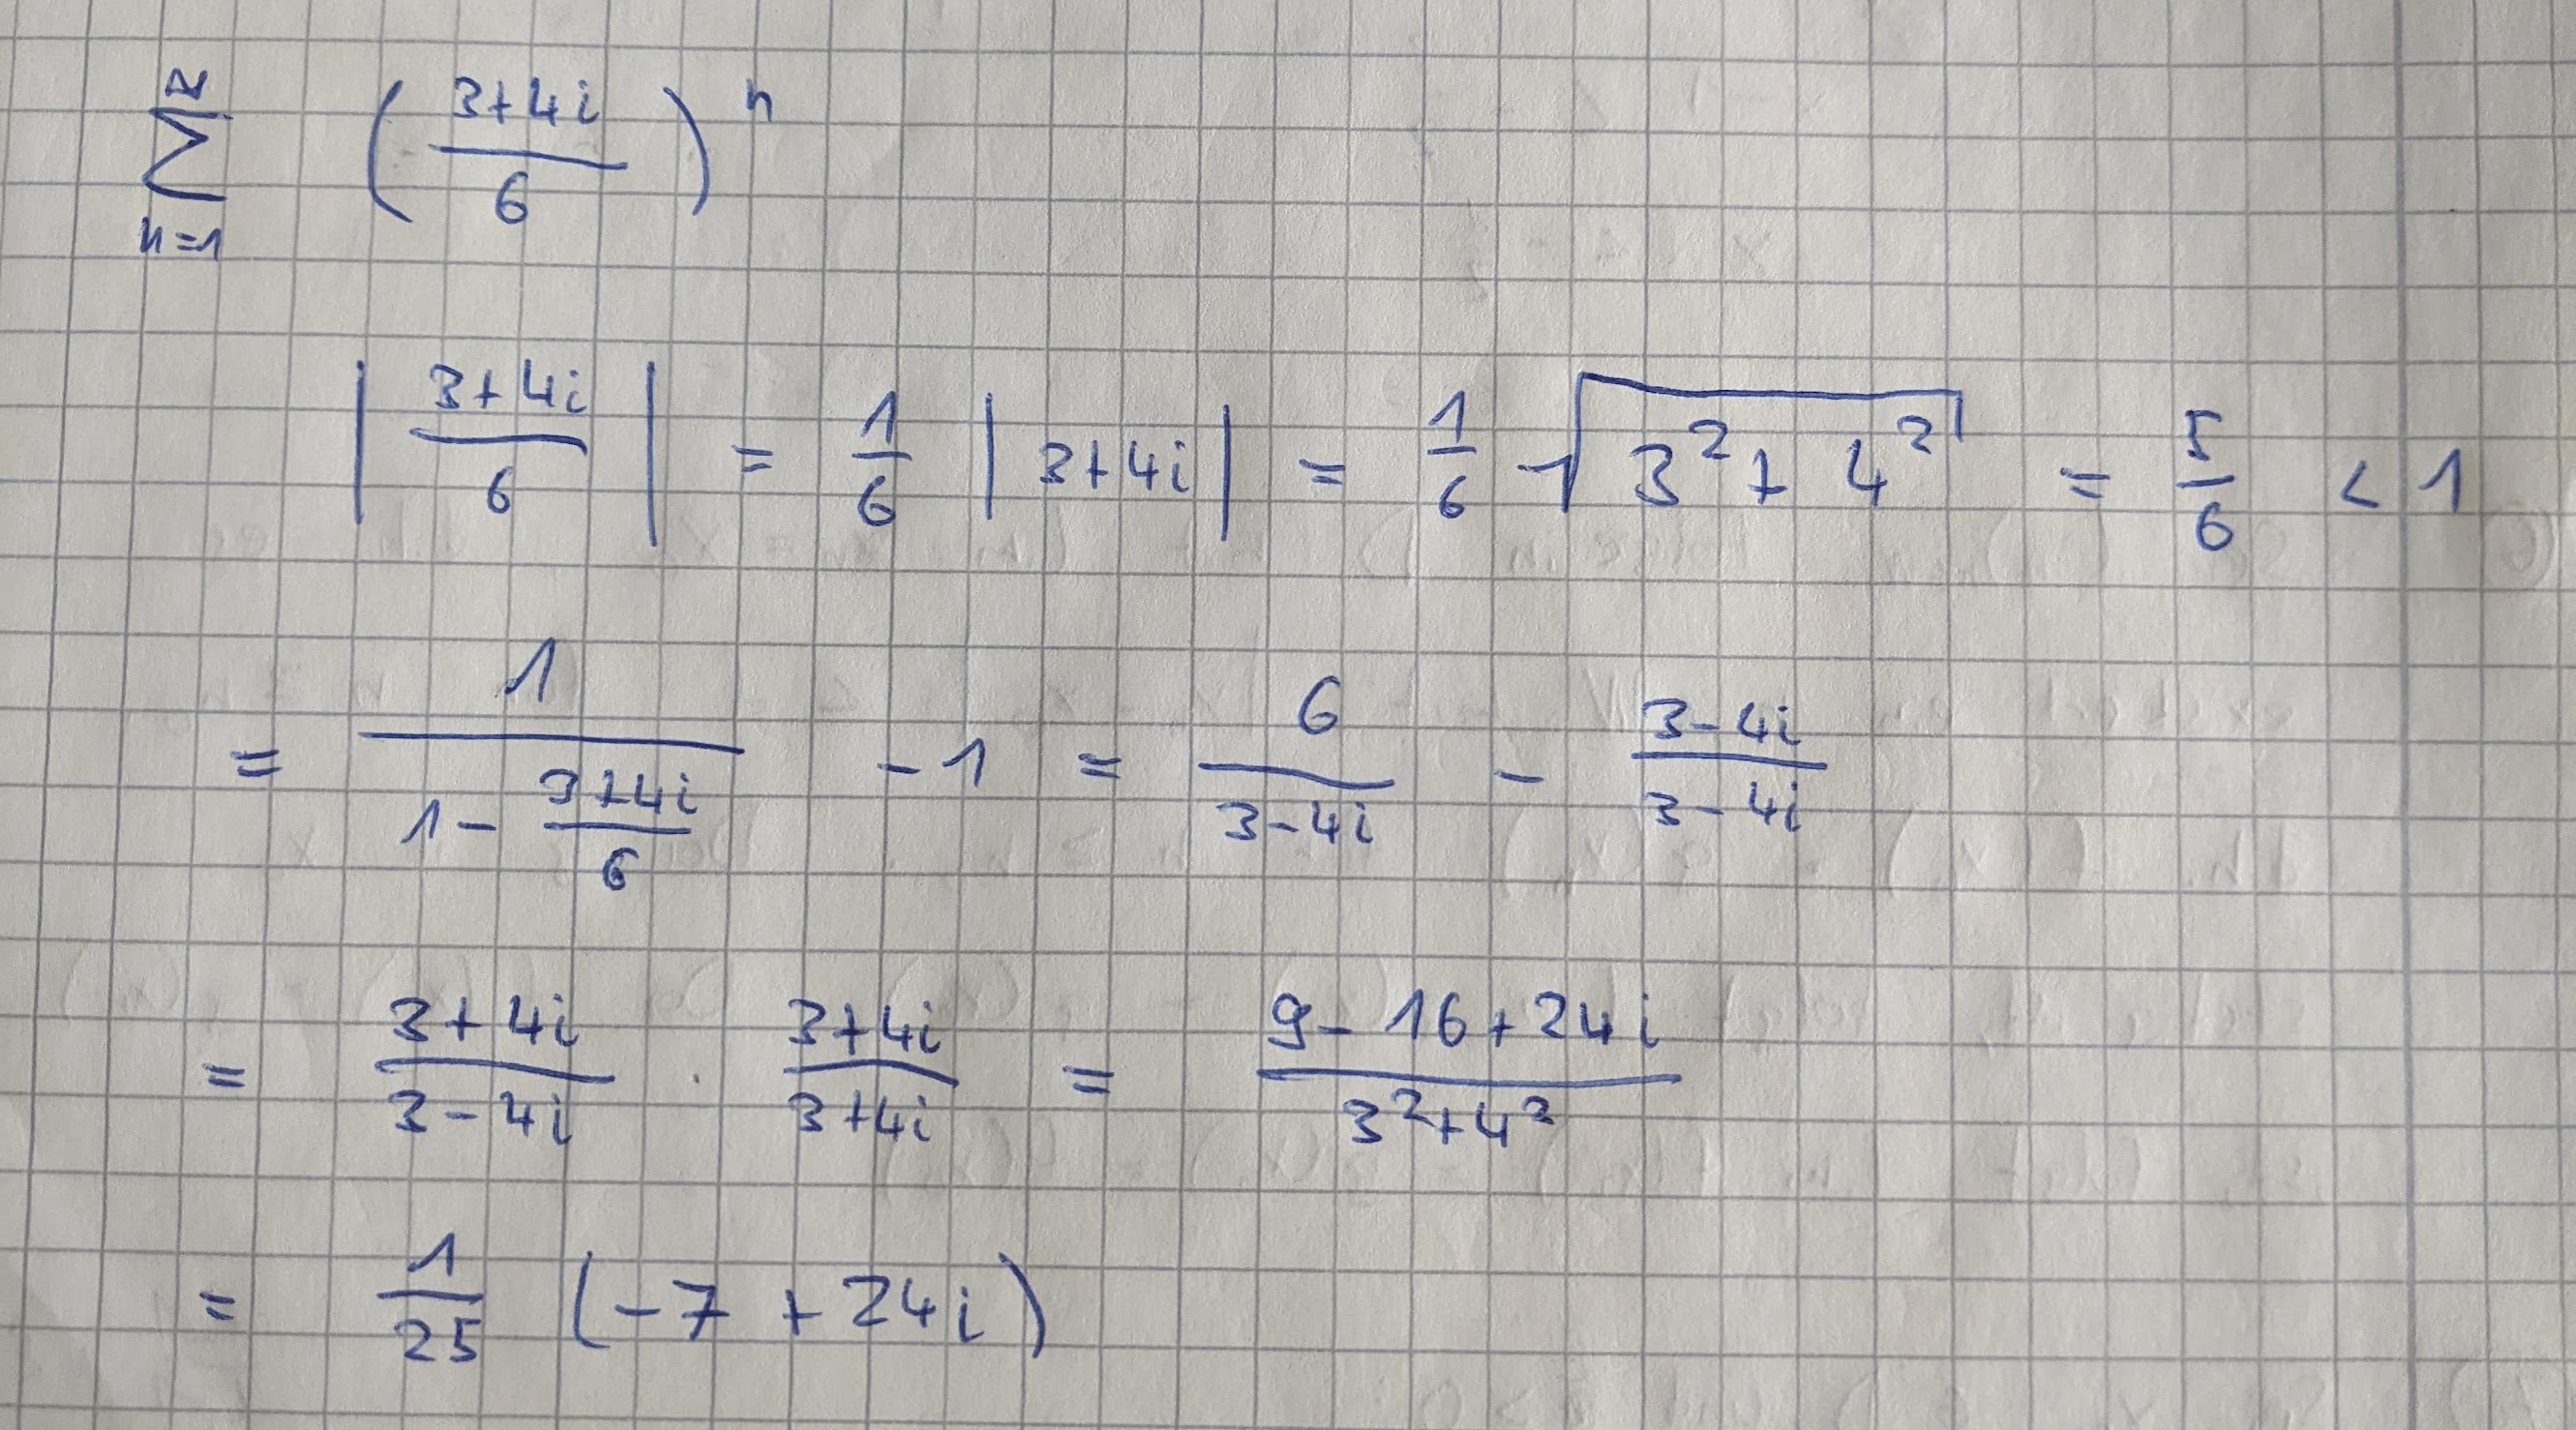 ∑_{n=1}^{∞} ( (3+4i)/6 )^n
| (3+4i)/6 | = 1/6 | 3+4i | = 1/6 √(3² + 4²) = 5/6 < 1
= 1/(1 - (3+4i)/6) - 1 = 6/(3-4i) - (3-4i)/(3-4i)
= (3+4i)/(3-4i) · (3+4i)/(3+4i) = (9-16+24i)/(3²+4²)
= 1/25 (-7 + 24i)